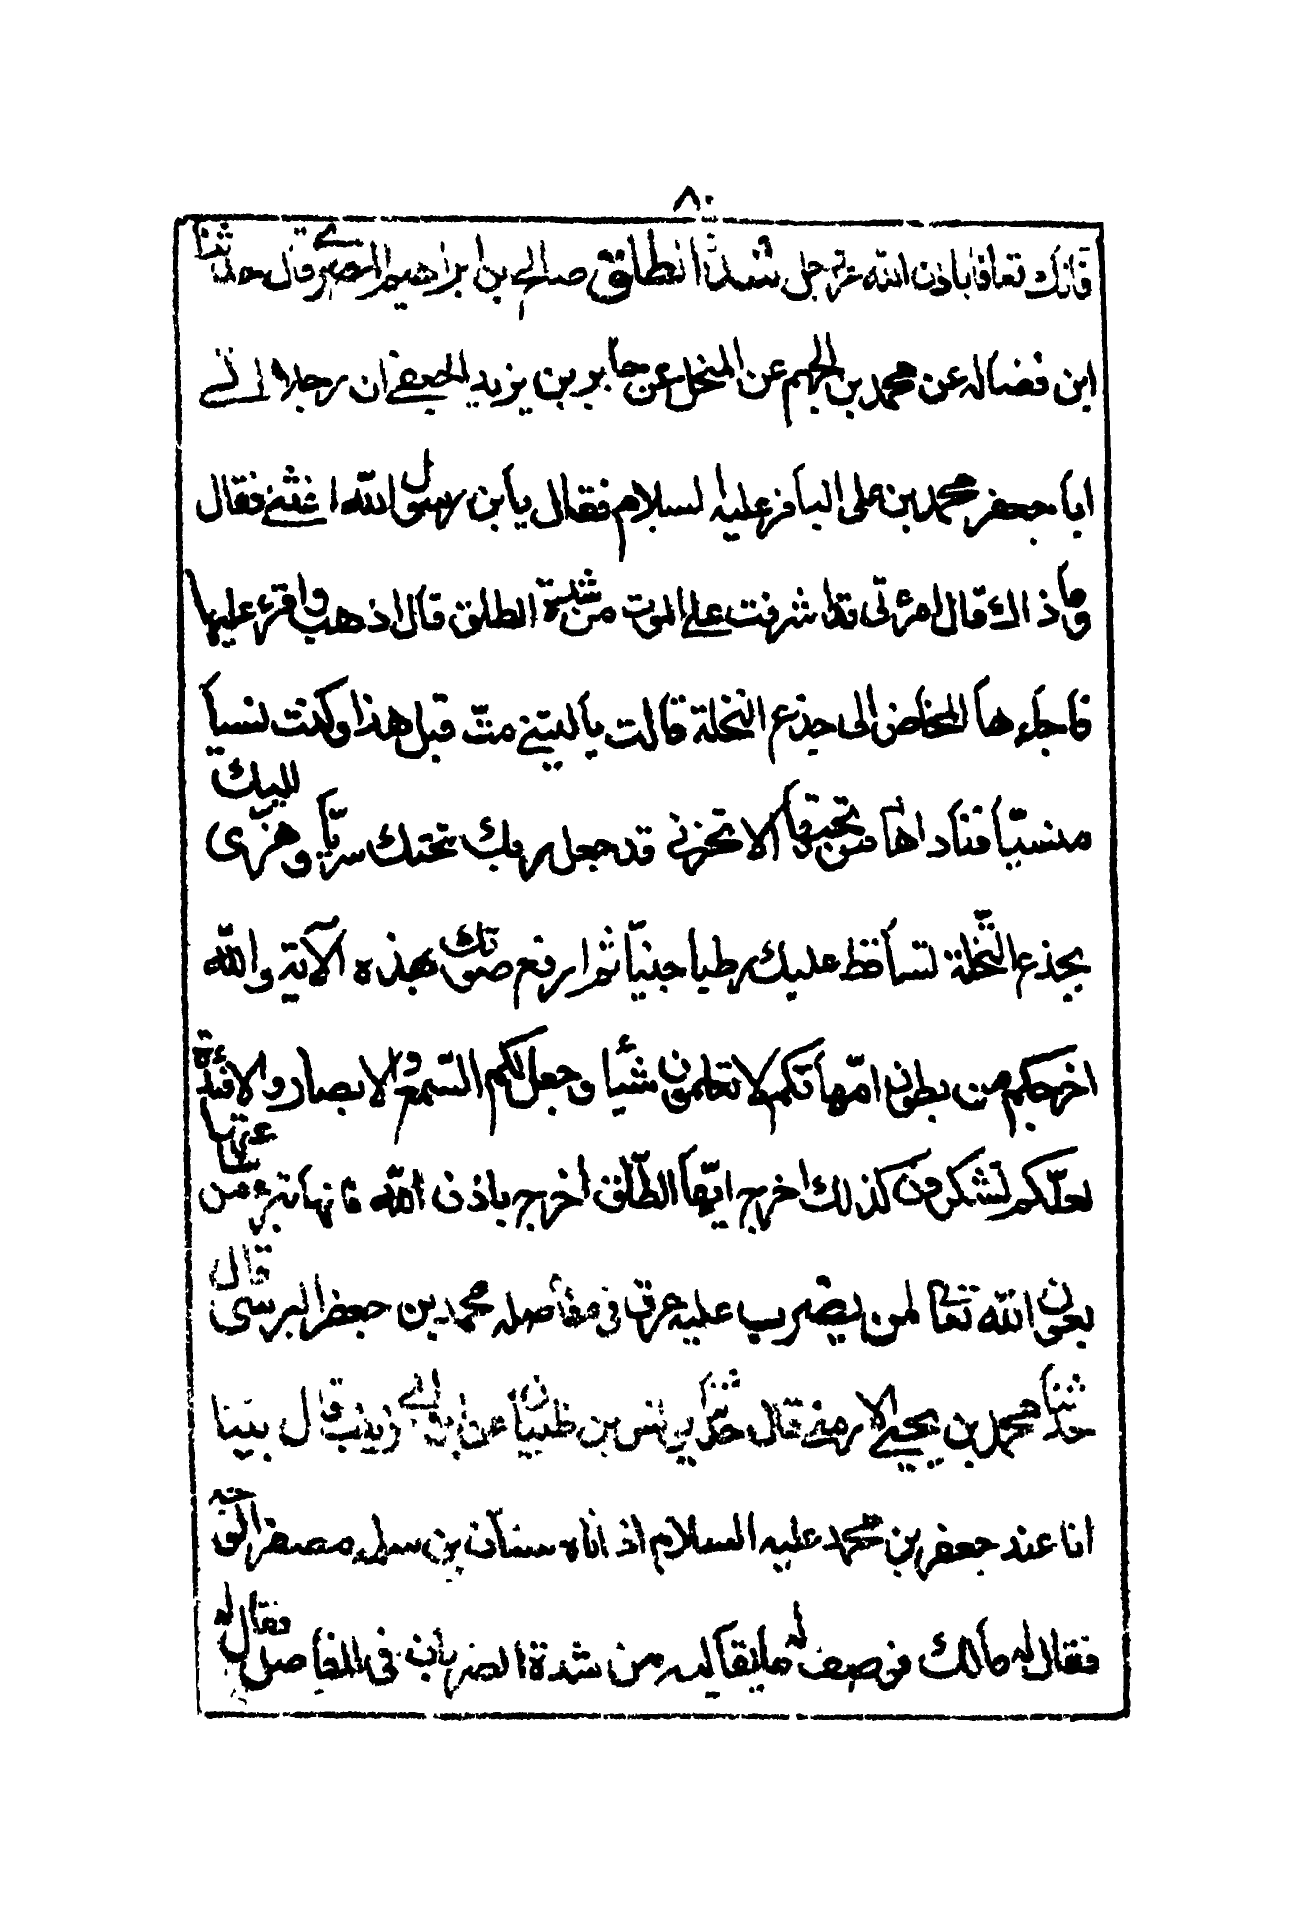 ٨٠
فانك تعافا باذن الله عز وجل شدة الطلق صالح بن ابراهيم المصري قال حدثنا
ابن فضاله عن محمد بن الجهم عن المنخل عن جابر بن يزيد الجعفي ان رجلا اتى
ابا جعفر محمد بن على الباقر عليه السلام فقال يا بن رسول الله اغثني فقال
وما ذاك قال امرئتى قد اشرفت على الموت من شدة الطلق قال اذهب واقرء عليها
فاجاءها المخاض الى جذع النخلة قالت يا ليتني متّ قبل هذا وكنت نسياً
منسيّاً فناداها من تحتها الا تحزني قد جعل ربك تحتك سريّاً وهزّى اليك
بجذع النّخلة تساقط عليك رطبا جنيّاً ثم ارفع صوتك بهذه الآية والله
اخرجكم من بطون امّهاتكم لا تعلمون شيئا وجعل لكم السّمع والابصار والافئدة
لعلّكم تشكرون كذلك اخرج ايّها الطّلق اخرج باذن الله فانها تبرء من ساعتها
بعون الله تعا لمن يضرب عليه عرق في مفاصله محمد بن جعفر البرسى قال
حدثنا محمد بن يحيى الارمني قال حدّثنا يونس بن ظبيان عن ابن ابي زينب قال بينا
انا عند جعفر بن محمد عليه السلام اذ اتاه سنان بن سلمه مصفر الوجه
فقال له مالك فوصف له ما يقاليه من شدة الضربان في المفاصل فقال له